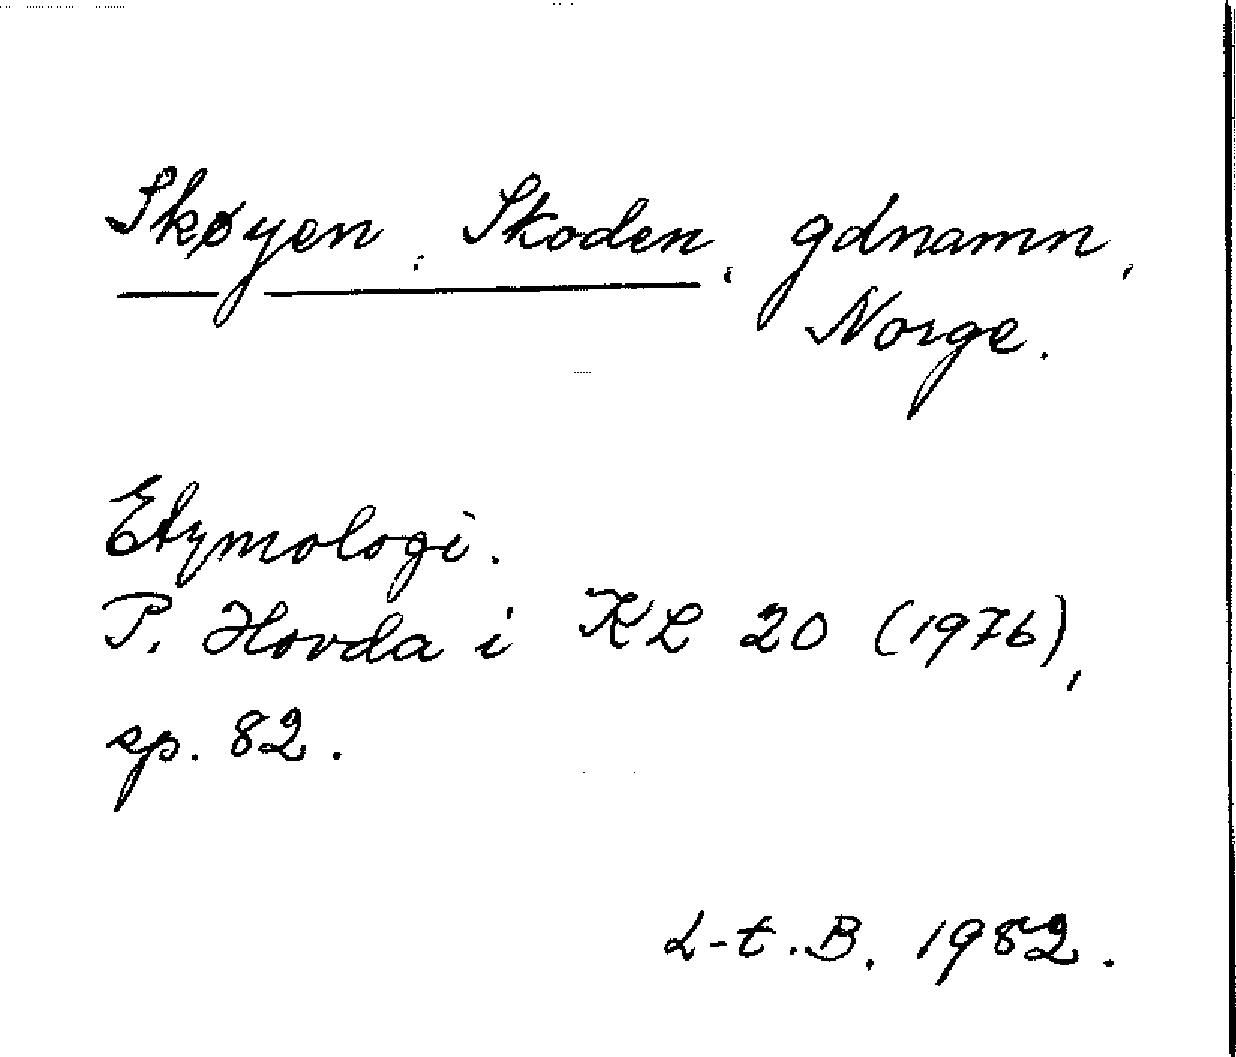 Skøyen, Skoden, gdnamn,
Norge.
Etymologi.
P. Hovda i KL 20 (1976),
sp. 82.
L-t.B. 1982.